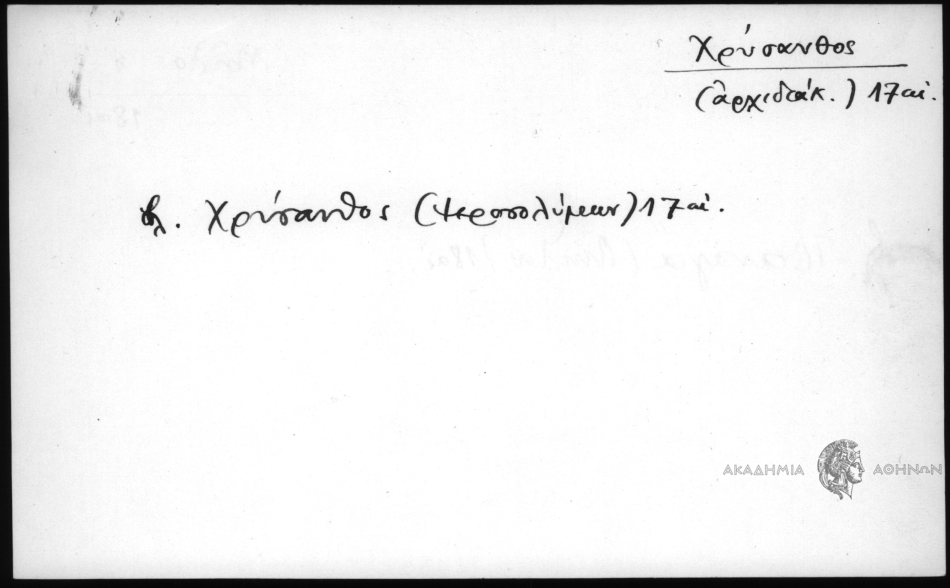 Χρύσανθος
(ἀρχιδιάκ.) 17 αἰ.
βλ. Χρύσανθος (Ἱεροσολύμων) 17 αἰ.
ΑΚΑΔΗΜΙΑ ΑΘΗΝΩΝ